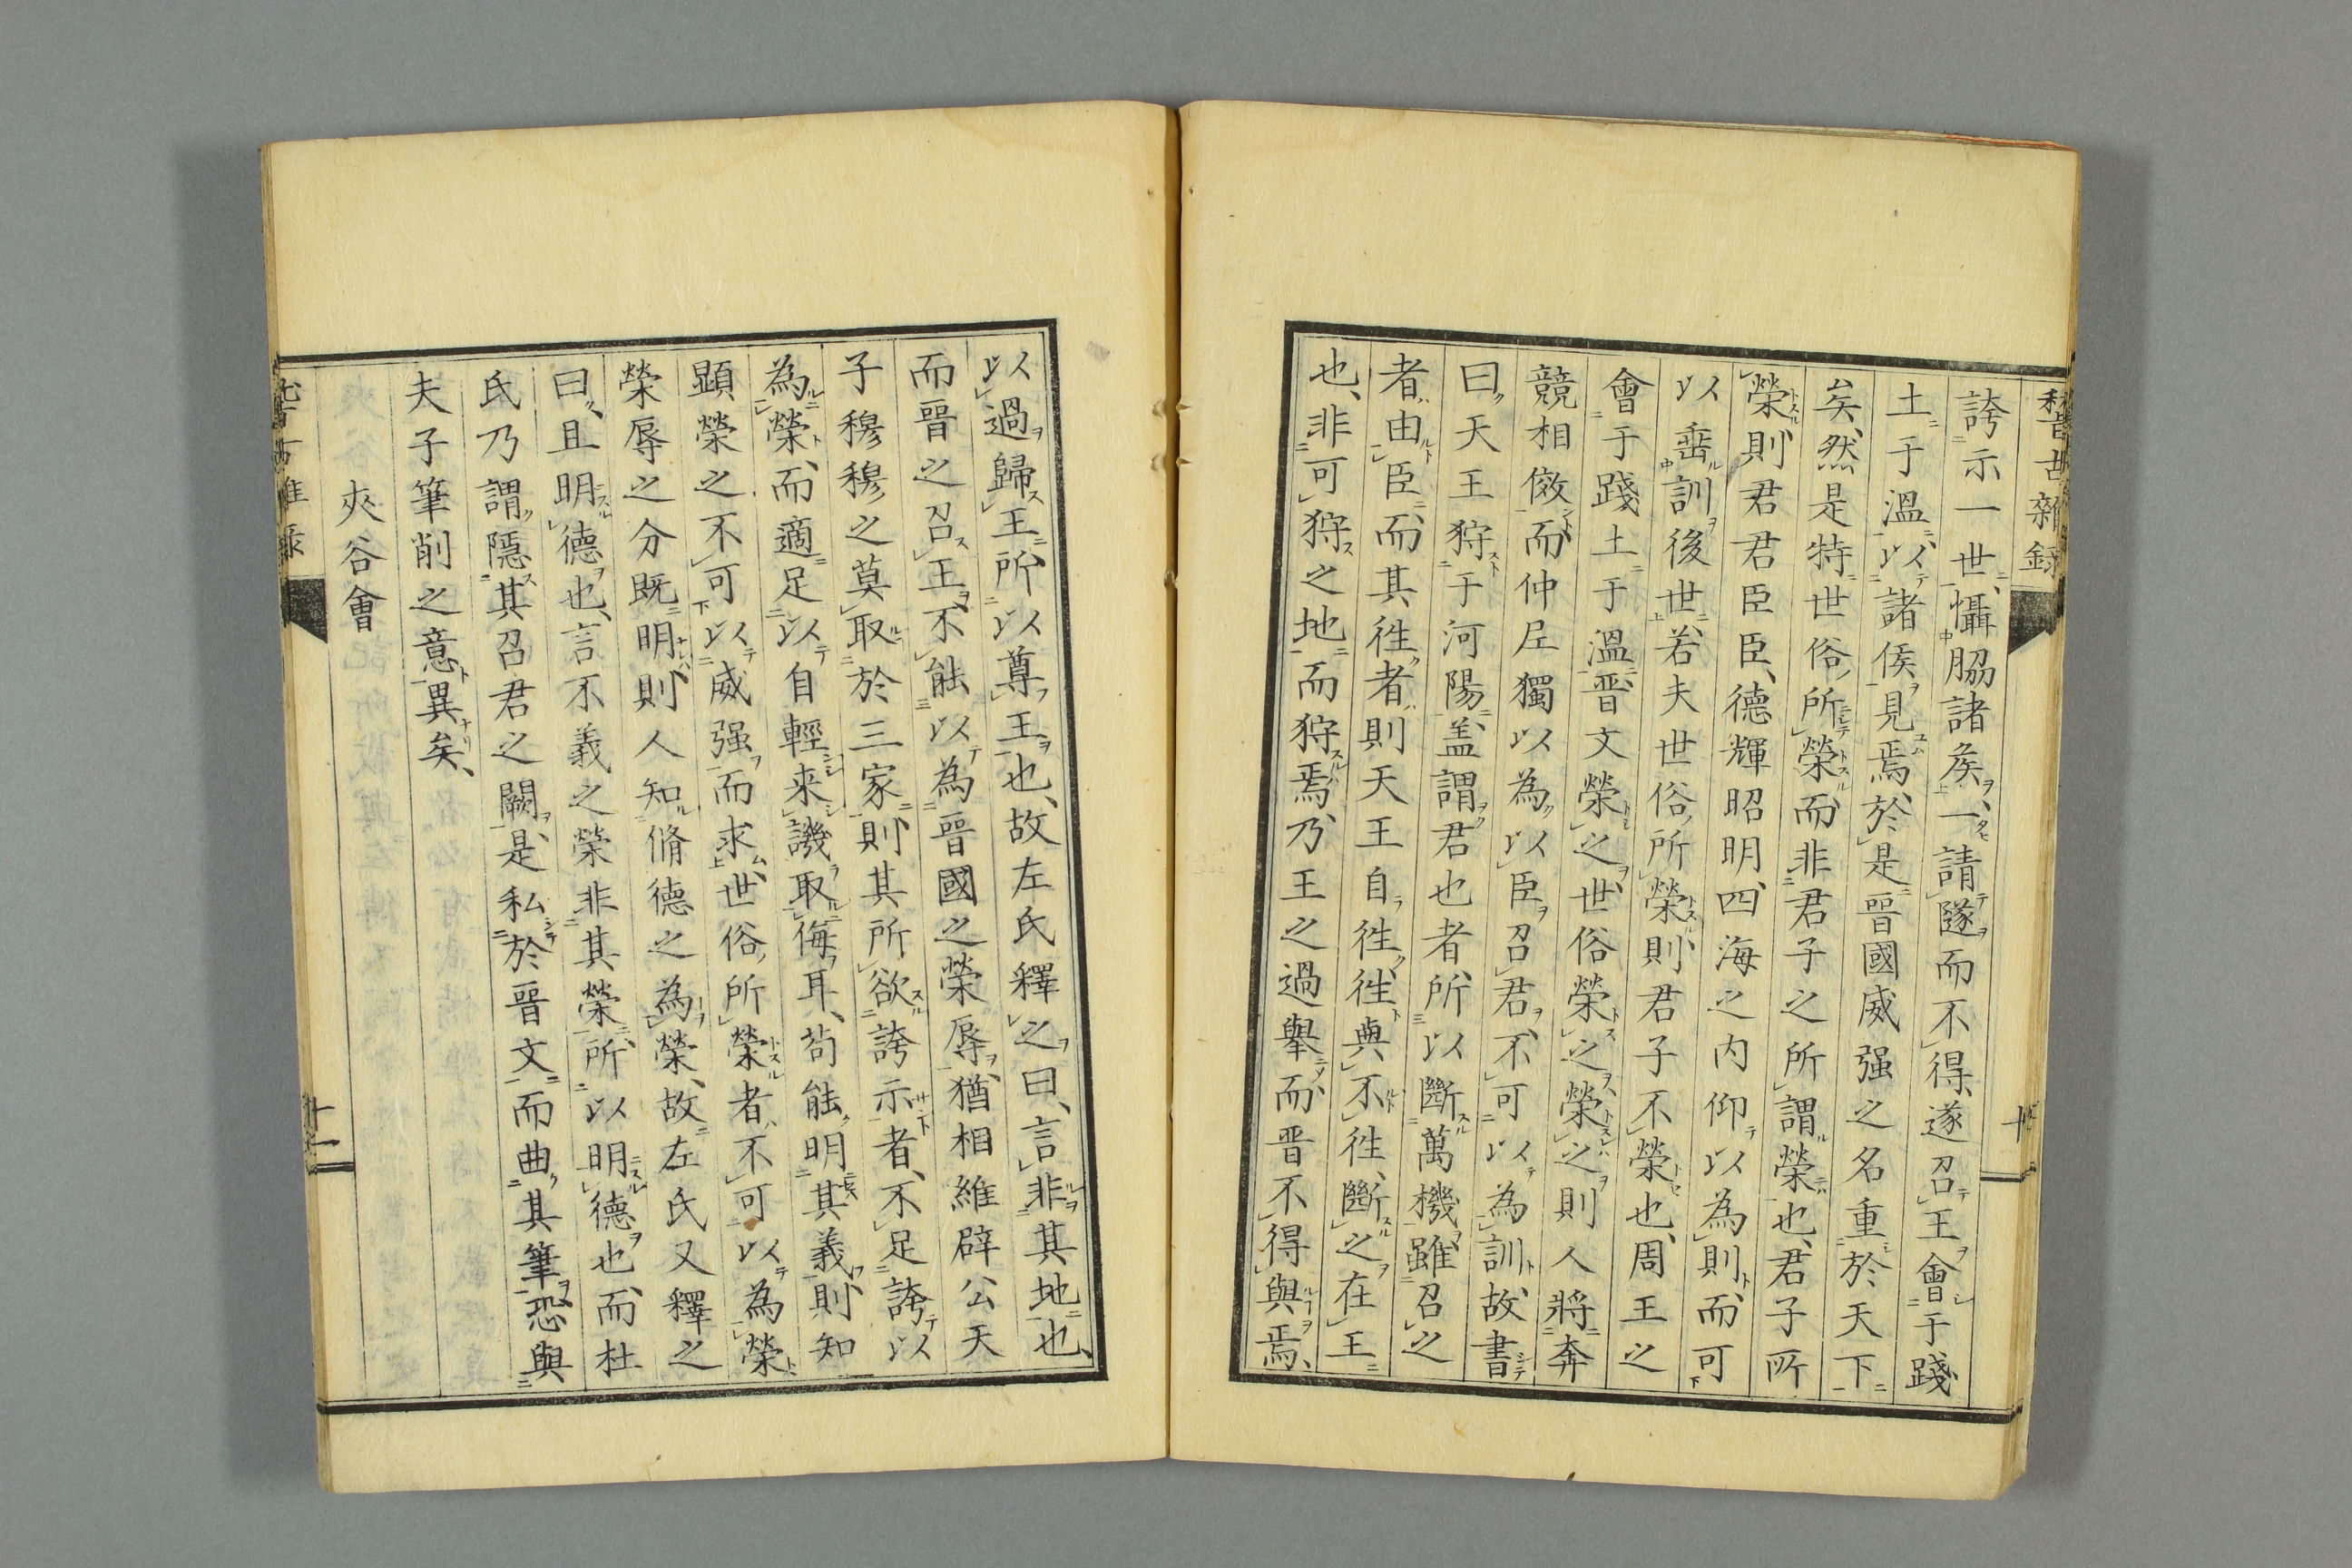 稽古雜錄
十
誇示一世、懾脇諸矦、一請隧而不得、遂召王會于踐
土于溫、以諸侯見焉、於是晉國威强之名重於天下
矣、然是特世俗所榮、而非君子之所謂榮也、君子所
榮、則君君臣臣、德輝昭明、四海之内仰以為則、而可
以垂訓後世、若夫世俗所榮、則君子不榮也、周王之
會于踐土于溫、晋文榮之、世俗榮之、榮之則人將奔
競相傚、而仲尼獨以為、以臣召君、不可以為訓、故書
曰、天王狩于河陽、盖謂君也者、所以斷萬機、雖召之
者由臣、而其徃者則天王自徃、徃與不徃、斷之在王
也、非可狩之地而狩焉、乃王之過舉、而晋不得與焉、
以過歸王、所以尊王也、故左氏釋之曰、言非其地也、
而晉之召王、不能以為晉國之榮辱、猶相維辟公天
子穆穆之莫取於三家、則其所欲誇示者、不足誇以
為榮、而適足以自輕来譏取侮耳、苟能明其義、則知
顕榮之不可以威强而求、世俗所榮者、不可以為榮
榮辱之分既明、則人知脩德之為榮、故左氏又釋之
曰、且明德也、言不義之榮非其榮、所以明德也、而杜
氏乃謂隱其召君之闕、是私於晉文而曲其筆、恐與
夫子筆削之意異矣、
夾谷會
稽古雜錄
十一